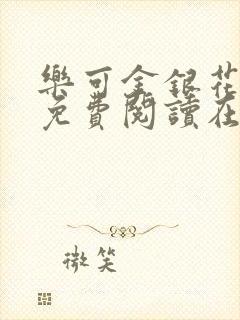 樂可金銀花
免費閱讀在
微笑